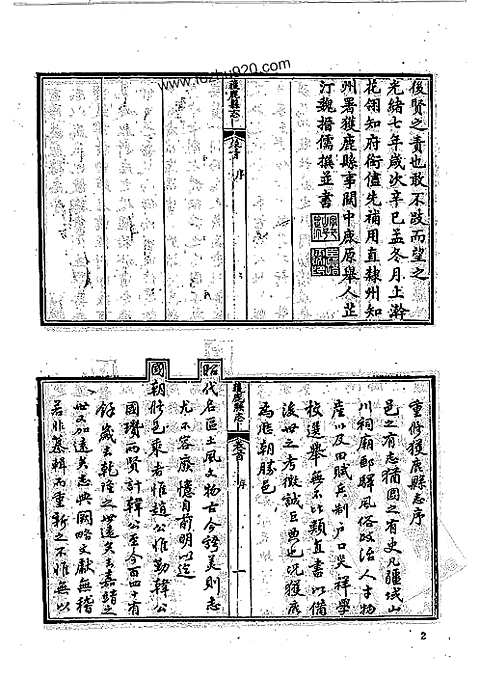 www.fozhu920.com
後賢之責也敢不跂而望之
光緒七年歲次辛巳孟冬月上澣
花翎知府銜儘先補用直隸州知
州署獲鹿縣事關中鹿原舉人芷
汀魏搢儒撰並書
獲鹿縣志
序
重修獲鹿縣志序
邑之有志猶國之有史凡疆域山
川祠廟郵驛風俗政治人才物
產以及田賦兵制戶口災祥學
校選舉無不比類直書以備
後世之考徵誠巨典也況獲鹿
為應朝勝邑
獲鹿縣志
序
一
昭代名區土風文物古今稱美則志
尤不容廢憶自前明以迄
國朝修邑乘者惟趙公惟勤韓公
國瓚兩賢計韓公至今百四十有
餘歲去乾隆之世遠矣去嘉靖之
世又加遠矣志典闕略文獻無稽
若非纂輯而重新之不惟無以
2